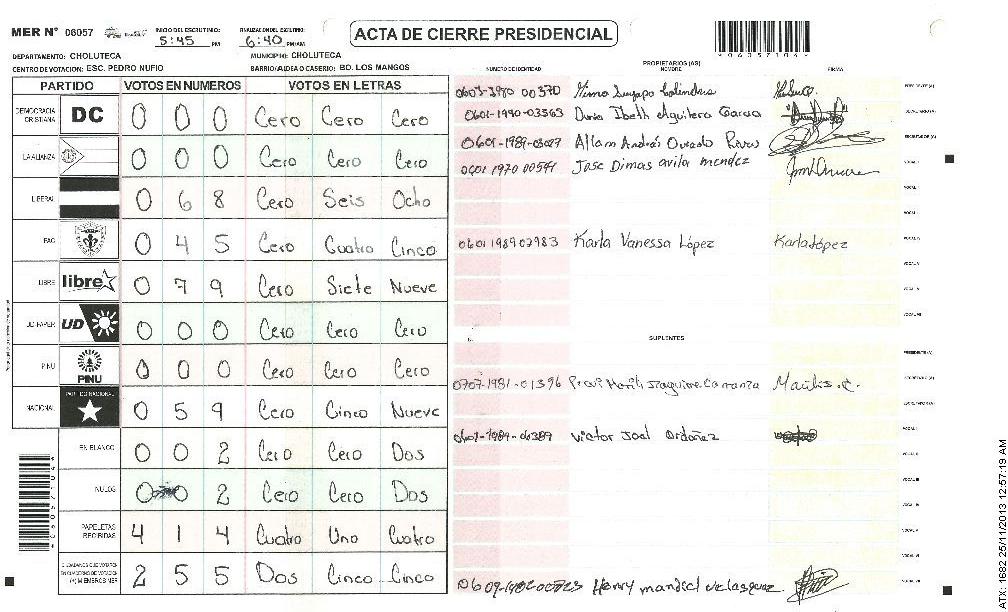 MER Nº 06057
INICIO DEL ESCRUTINIO: 5:45 PM
FINALIZACION DEL ESCRUTINIO: 6:40 PM/AM
ACTA DE CIERRE PRESIDENCIAL
DEPARTAMENTO: CHOLUTECA
MUNICIPIO: CHOLUTECA
CENTRO DE VOTACION: ESC. PEDRO NUFIO
BARRIO/ALDEA O CASERIO: BO. LOS MANGOS
PARTIDO VOTOS EN NUMEROS VOTOS EN LETRAS
DEMOCRACIA CRISTIANA DC 0 0 0 Cero Cero Cero
LA ALIANZA 0 0 0 Cero Cero Cero
LIBERAL 0 6 8 Cero Seis Ocho
PAC 0 4 5 Cero Cuatro Cinco
LIBRE libre 0 7 9 Cero Siete Nueve
UD-FAPER UD 0 0 0 Cero Cero Cero
PINU PINU 0 0 0 Cero Cero Cero
NACIONAL PARTIDO NACIONAL 0 5 9 Cero Cinco Nueve
EN BLANCO 0 0 2 Cero Cero Dos
NULOS 0 0 2 Cero Cero Dos
PAPELETAS RECIBIDAS 4 1 4 Cuatro Uno Cuatro
CIUDADANOS QUE VOTARON
(+) MIEMBROS MER 2 5 5 Dos Cinco Cinco
PROPIETARIOS (AS)
NUMERO DE IDENTIDAD NOMBRE FIRMA
PRESIDENTE (A)
0601-1990-03563 Ibeth Aguilera Garcia
Allam Andrés Oviedo
0601 1970 00541 Jose Dimas avila mendez
VOCAL
VOCAL
0601 1989 02983 Karla Vanessa López Karla López
SUPLENTES
PRESIDENTE (A)
0707-1981-01396 SECRETARIO (A)
Victor Joel Ordoñez
Henry mandiel velasquez
ATX: 1682 25/11/2013 12:57:19 AM